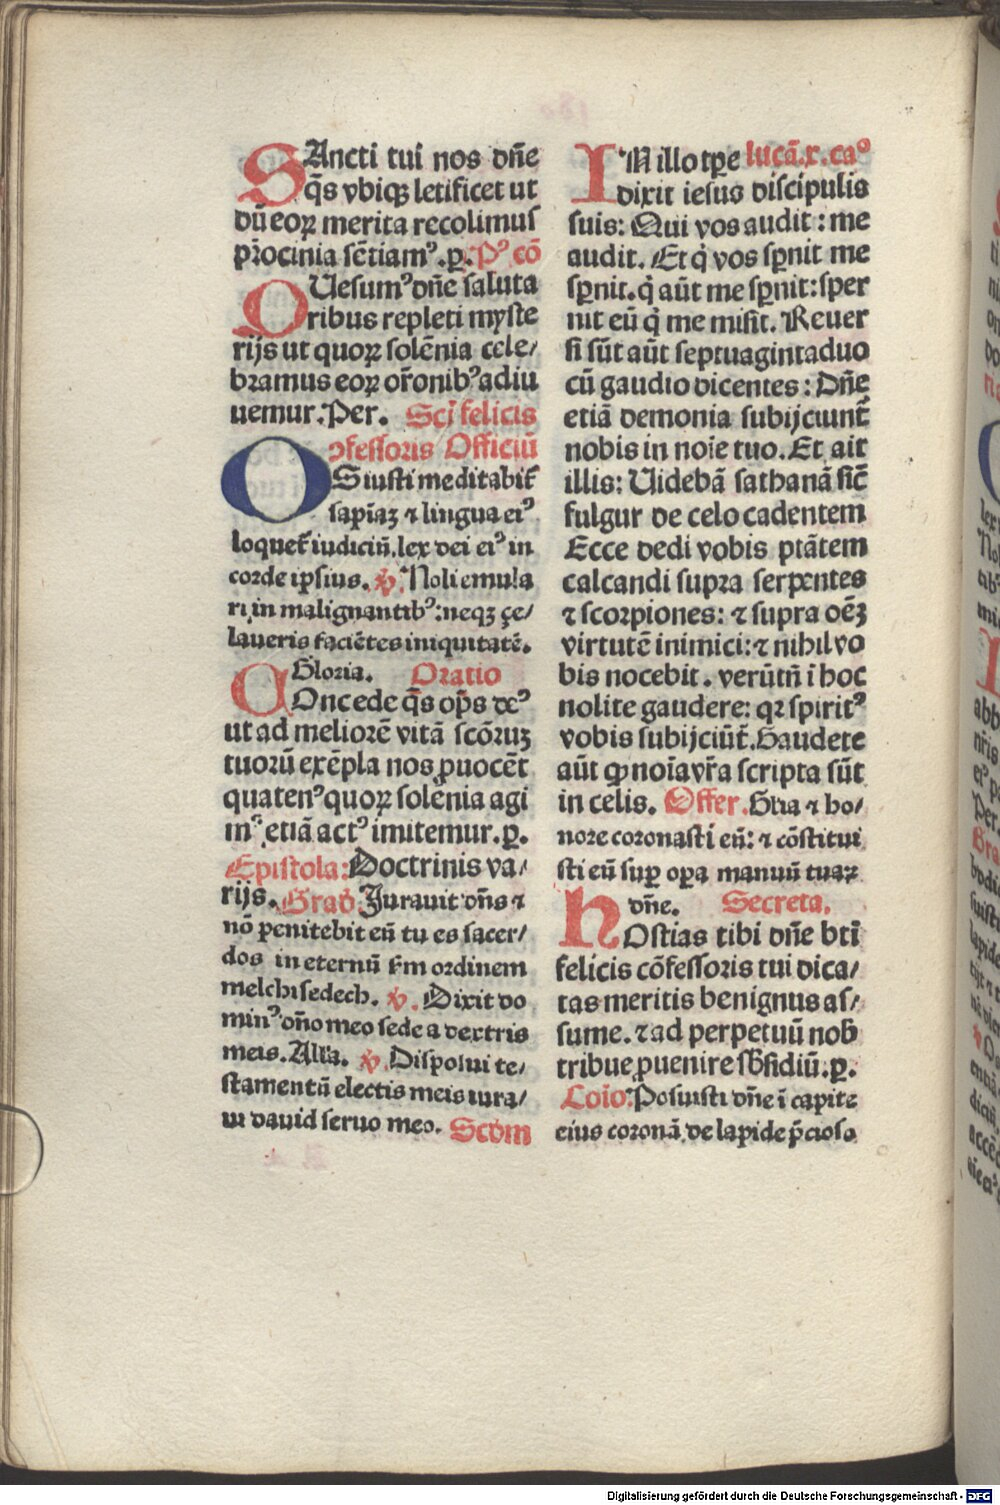 SAncti tui nos dn̄e
q̄s vbiqꝫ letificet ut
dū eoꝝ merita recolimus
pr̄ocinia sētiamꝰ.ꝑ. Pꝰ cō
QUesumꝰ dn̄e saluta
ribus repleti myste
rijs ut quoꝝ solēnia cele/
bramus eoꝝ or̄onibꝰ adiu
uemur. Per. Scī felicis
ↄfessoris Officiū
OS iusti meditabit̄
sapīaꝫ ⁊ lingua eiꝰ
loquet̄ iudiciū. lex dei eiꝰ in
corde ipsius. ℣. Noli emula
ri in malignantibꝰ: neqꝫ çe/
laueris faciētes iniquitatē.
Gloria. Oratio
COncede q̄s op̄s deꝰ
ut ad meliorē vitā scōruꝫ
tuorū exēpla nos ꝓuocēt
quatenꝰ quoꝝ solēnia agi
mꝰ etiā actꝰ imitemur.ꝑ.
Epistola: Doctrinis va/
rijs. Grad̄ Jurauit dn̄s ⁊
nō penitebit eū tu es sacer/
dos in eternū s̄m ordinem
melchisedech. ℣. Dixit do
minꝰ dn̄o meo sede a dextris
meis. Alla. ℣. Disposui te/
stamentū electis meis iura/
ui dauid seruo meo. Scd̄m
IN illo tp̄e lucā.x.caº
dixit iesus discipulis
suis: Qui vos audit: me
audit. Et q̇ vos sꝑnit me
sꝑnit. q̇ aūt me sꝑnit: sper
nit eū q̇ me misit. Reuer
si sūt aūt septuagintaduo
cū gaudio dicentes: Dn̄e
etiā demonia subijciunt̄
nobis in noīe tuo. Et ait
illis: Uidebā sathanā sic̄
fulgur de celo cadentem
Ecce dedi vobis ptātem
calcandi supra serpentes
⁊ scorpiones: ⁊ supra oēꝫ
virtutē inimici: ⁊ nihil vo
bis nocebit. verūtn̄ ī hoc
nolite gaudere: qꝛ spiritꝰ
vobis subijciūt̄. Gaudete
aūt ꝙ noīa vr̄a scripta sūt
in celis. Offer. Gl̄ia ⁊ ho/
nore coronasti eū: ⁊ cōstitui
sti eū suꝑ oꝑa manuū tuaꝝ
dn̄e. Secreta.
hOstias tibi dn̄e bt̄i
felicis cōfessoris tui dica/
tas meritis benignus as/
sume. ⁊ ad perpetuū nob̄
tribue ꝓuenire sb̄sidiū.ꝑ.
Coīo: Posuisti dn̄e ī capite
eius coronā de lapide p̄cioso
Digitalisierung gefördert durch die Deutsche Forschungsgemeinschaft - DFG